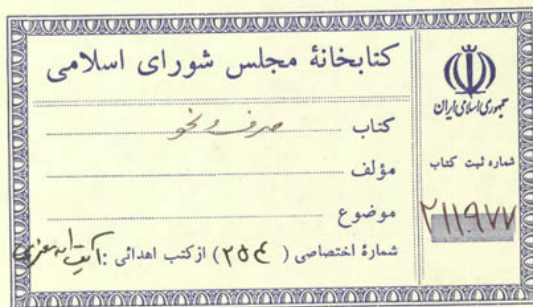 کتابخانهٔ مجلس شورای اسلامی
کتاب صرف و نحو
مؤلف
موضوع
شمارهٔ اختصاصی ( ۲۵۴ ) از کتب اهدائی :
جمهوری اسلامی ایران
شماره ثبت کتاب
۲۱۱۹۷۷